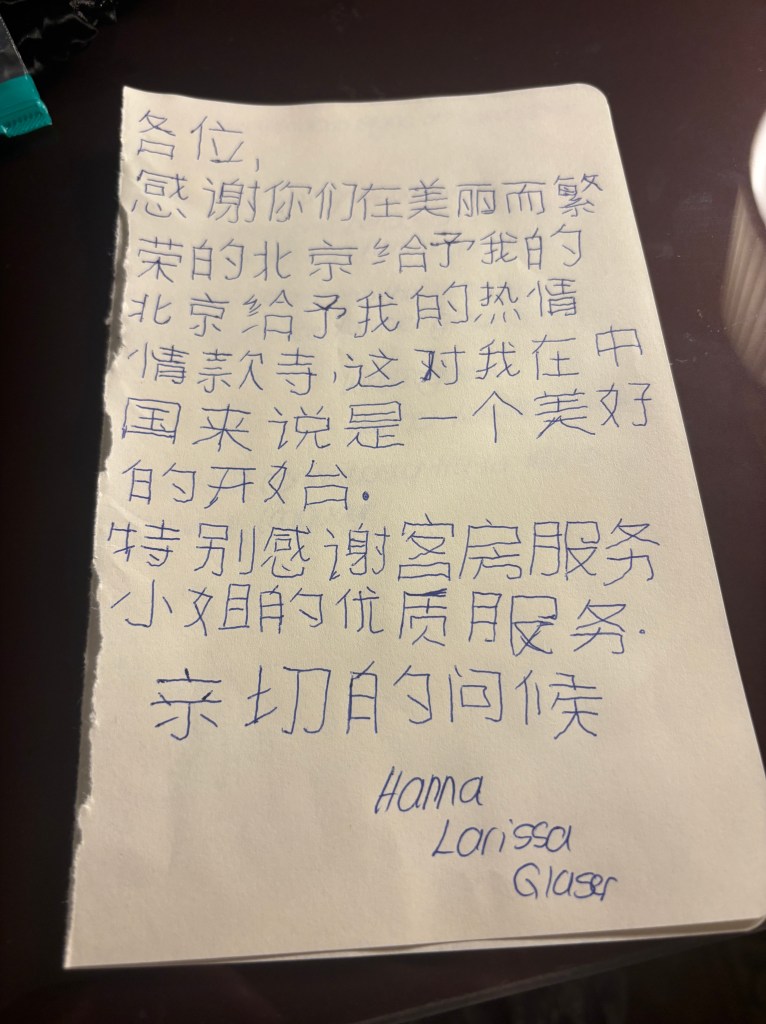 各位,
感谢你们在美丽而繁
荣的北京给予我的
北京给予我的热情
情款寺,这对我在中
国来说是一个美好
的开始.
特别感谢客房服务
小姐的优质服务.
亲切的问候
Hanna
Larissa
Glaser